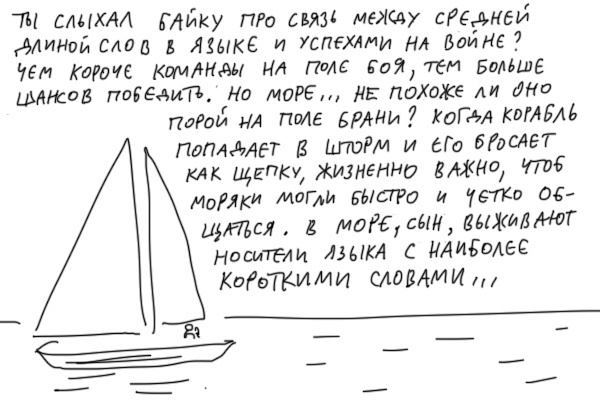 ТЫ СЛЫХАЛ БАЙКУ ПРО СВЯЗЬ МЕЖДУ СРЕДНЕЙ
ДЛИНОЙ СЛОВ В ЯЗЫКЕ И УСПЕХАМИ НА ВОЙНЕ?
ЧЕМ КОРОЧЕ КОМАНДЫ НА ПОЛЕ БОЯ, ТЕМ БОЛЬШЕ
ШАНСОВ ПОБЕДИТЬ. НО МОРЕ... НЕ ПОХОЖЕ ЛИ ОНО
ПОРОЙ НА ПОЛЕ БРАНИ? КОГДА КОРАБЛЬ
ПОПАДАЕТ В ШТОРМ И ЕГО БРОСАЕТ
КАК ЩЕПКУ, ЖИЗНЕННО ВАЖНО, ЧТОБ
МОРЯКИ МОГЛИ БЫСТРО И ЧЕТКО ОБ-
ЩАТЬСЯ. В МОРЕ, СЫН, ВЫЖИВАЮТ
НОСИТЕЛИ ЯЗЫКА С НАИБОЛЕЕ
КОРОТКИМИ СЛОВАМИ...